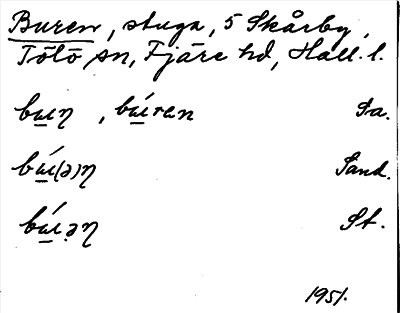 Buren, stuga, 5 Skårby,
Tölö sn, Fjäre hd, Hall. l.
bɯ̲ŋ, bɯ̲́ren Sa.
bɯ̲́(ə)ŋ Sand.
bɯ̲́əŋ St.
1951.